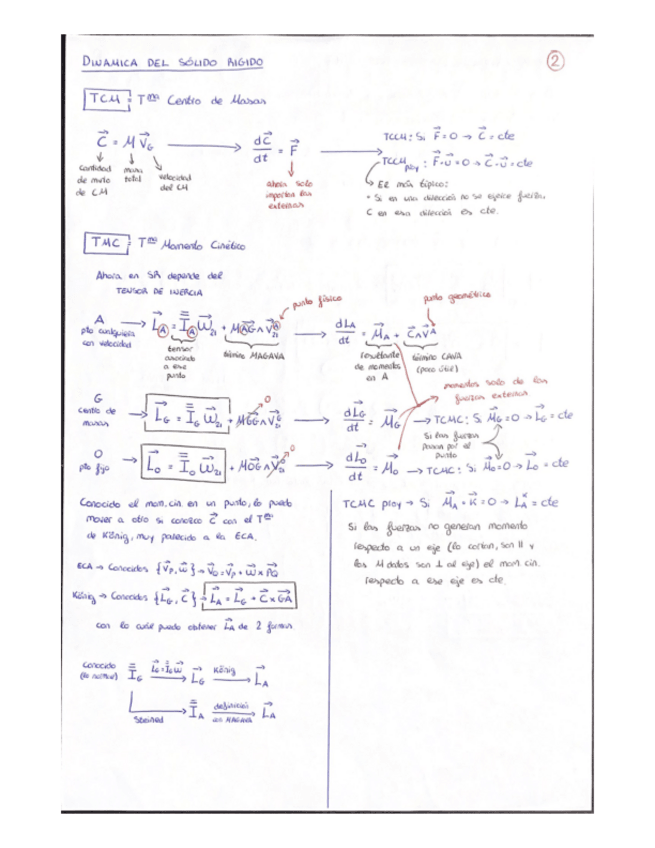 DINAMICA DEL SÓLIDO RIGIDO
2
TCM = Tma Centro de Masas
C⃗ = M V⃗G → dC⃗/dt = F⃗
cantidad de movto de CM
masa total
velocidad del CM
ahora solo importan las externas
TCCM: Si F⃗=0 → C⃗=cte
TCCM proy: F⃗·u⃗=0 → C⃗·u⃗=cte
El más típico:
• Si en una dirección no se ejerce fuerza,
C en esa dirección es cte.
TMC = Tma Momento Cinético
Ahora en SR depende del
TENSOR DE INERCIA
punto físico
punto geométrico
A
pto cualquiera
con velocidad
→ L⃗A = I̿A ω⃗21 + M AG ∧ V⃗A21 → dLA/dt = M⃗A + C⃗∧V⃗A
tensor asociado a ese punto
término MAGAVA
resultante de momentos en A
término CAVA
(poco útil)
momentos solo de las
fuerzas externas
G
centro de
masas
→ L⃗G = I̿G ω⃗21 + M GG ∧ V⃗G21 0 → dL⃗G/dt = M⃗G → TCMC: Si M⃗G=0 → L⃗G=cte
Si las fuerzas
pasan por el
punto
O
pto fijo
→ L⃗O = I̿O ω⃗21 + M OG ∧ V⃗O21 0 → dL⃗O/dt = M⃗O → TCMC: Si M⃗O=0 → L⃗O=cte
Conocido el mom. cin. en un punto, lo puedo
mover a otro si conozco C⃗ con el Tma
de König, muy parecido a la ECA.
ECA → Conocidos {V⃗P, ω⃗} → V⃗Q = V⃗P + ω⃗×PQ
König → Conocidos {L⃗G, C⃗} → L⃗A = L⃗G + C⃗×GA
con lo cual puedo obtener L⃗A de 2 formas
Conocido
(lo normal)
I̿G L⃗G=I̿Gω⃗ → L⃗G König → L⃗A
Steiner → I̿A definición con MAGAVA → L⃗A
TCMC proy → Si M⃗A·K⃗=0 → LAK=cte
Si las fuerzas no generan momento
respecto a un eje (lo cortan, son || y
los M dados son ⊥ al eje) el mom cin.
respecto a ese eje es cte.